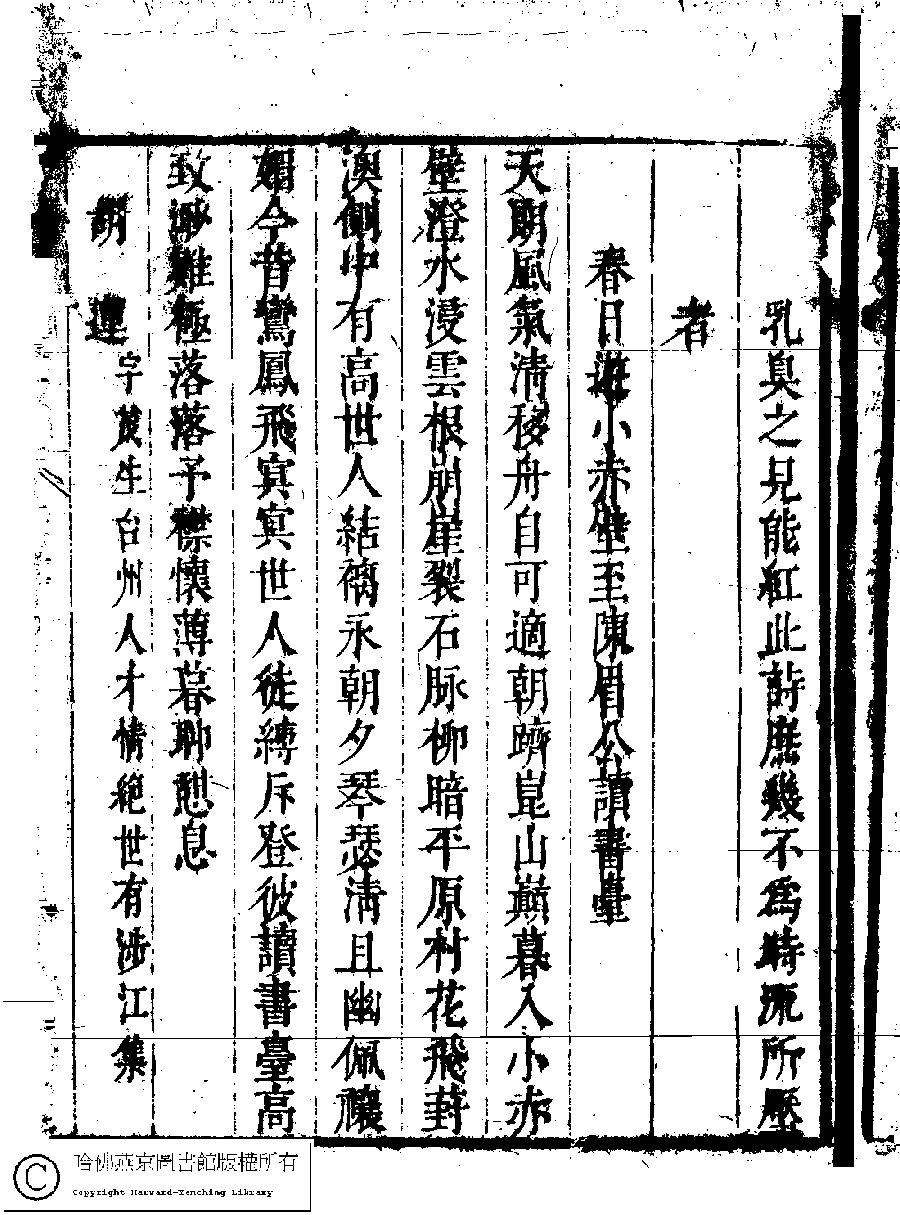 乳臭之見能紅此詩庶幾不為時流所壓
者
春日遊小赤壁至陳眉公讀書臺
天朗風氣清移舟自可適朝躋崑山巔暮入小赤
壁澄水浸雲根崩崖裂石脉柳暗平原村花飛葑
澳側中有高世人結褵永朝夕琴瑟清且幽佩蘹
媚今昔鸞鳳飛寞寞世人徒縛斥登彼讀書臺高
致渺難極落落予襟懷薄暮聊憩息
胡蓮
字茂生台州人才情絶世有涉江集
哈佛燕京圖書館版權所有
Copyright Harvard-Yenching Library